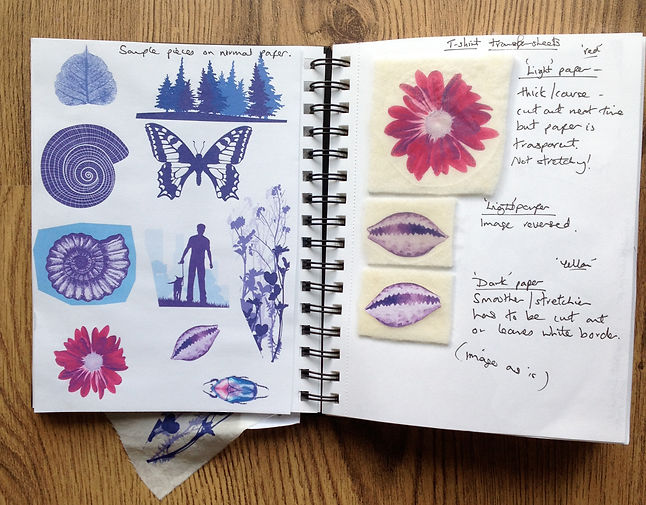 Sample pieces on normal paper.
T-shirt transfer sheets
'red'
'Light' paper -
thick/course -
cut out next time
but paper is
trasparent.
Not stretchy!
'Light' paper
Image reversed.
'Yellow'
'Dark' paper
Smoother/stretchier
has to be cut out
or leaves white border.
(image as is)